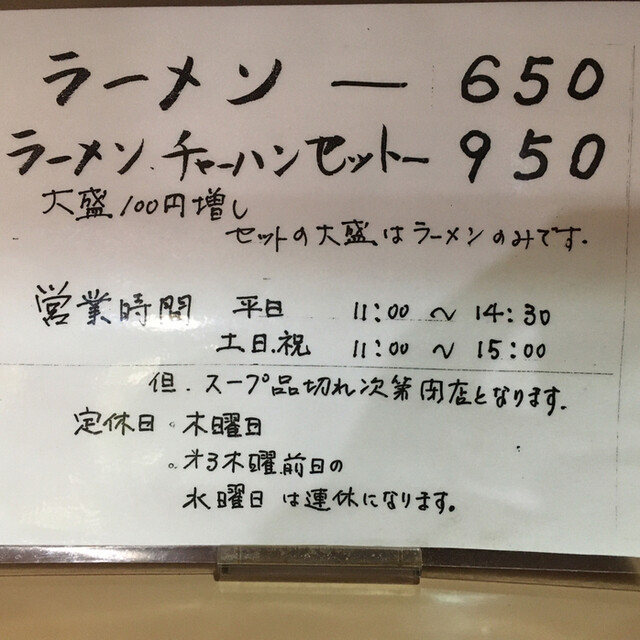 ラーメン — 650
ラーメン.チャーハンセット— 950
大盛100円増し
セットの大盛はラーメンのみです.
営業時間 平日 11:00 ～ 14:30
土日.祝 11:00 ～ 15:00
但.スープ品切れ次第閉店となります.
定休日。木曜日
。オ3木曜前日の
水曜日は連休になります。